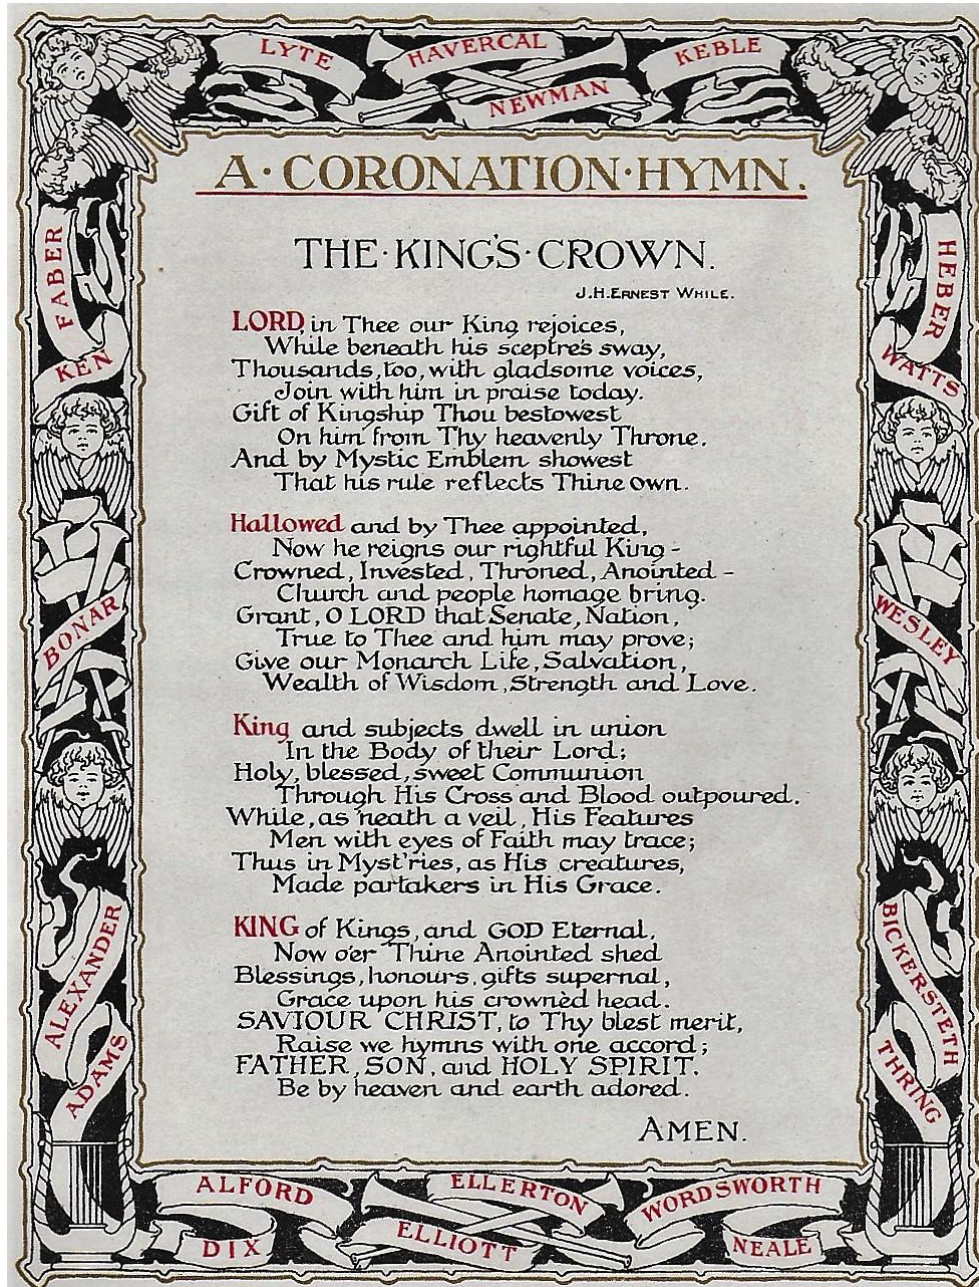 LYTE
HAVERCAL
KEBLE
NEWMAN
A·CORONATION·HYMN.
FABER
HEBER
KEN
WATTS
THE·KING'S·CROWN.
J.H.ERNEST WHILE.
LORD, in Thee our King rejoices,
While beneath his sceptre's sway,
Thousands, too, with gladsome voices,
Join with him in praise today.
Gift of Kingship Thou bestowest
On him from Thy heavenly Throne.
And by Mystic Emblem showest
That his rule reflects Thine own.
Hallowed and by Thee appointed,
Now he reigns our rightful King -
Crowned, Invested, Throned, Anointed -
Church and people homage bring.
Grant, O LORD that Senate, Nation,
True to Thee and him may prove;
Give our Monarch Life, Salvation,
Wealth of Wisdom, Strength and Love.
BONAR
WESLEY
King and subjects dwell in union
In the Body of their Lord;
Holy, blessed, sweet Communion
Through His Cross and Blood outpoured.
While, as 'neath a veil, His Features
Men with eyes of Faith may trace;
Thus in Myst'ries, as His creatures,
Made partakers in His Grace.
KING of Kings, and GOD Eternal,
Now o'er Thine Anointed shed
Blessings, honours, gifts supernal,
Grace upon his crownèd head.
SAVIOUR CHRIST, to Thy blest merit,
Raise we hymns with one accord;
FATHER, SON, and HOLY SPIRIT.
Be by heaven and earth adored.
AMEN.
ALEXANDER
BICKERSTETH
ADAMS
THRING
ALFORD
ELLERTON
WORDSWORTH
DIX
ELLIOTT
NEALE